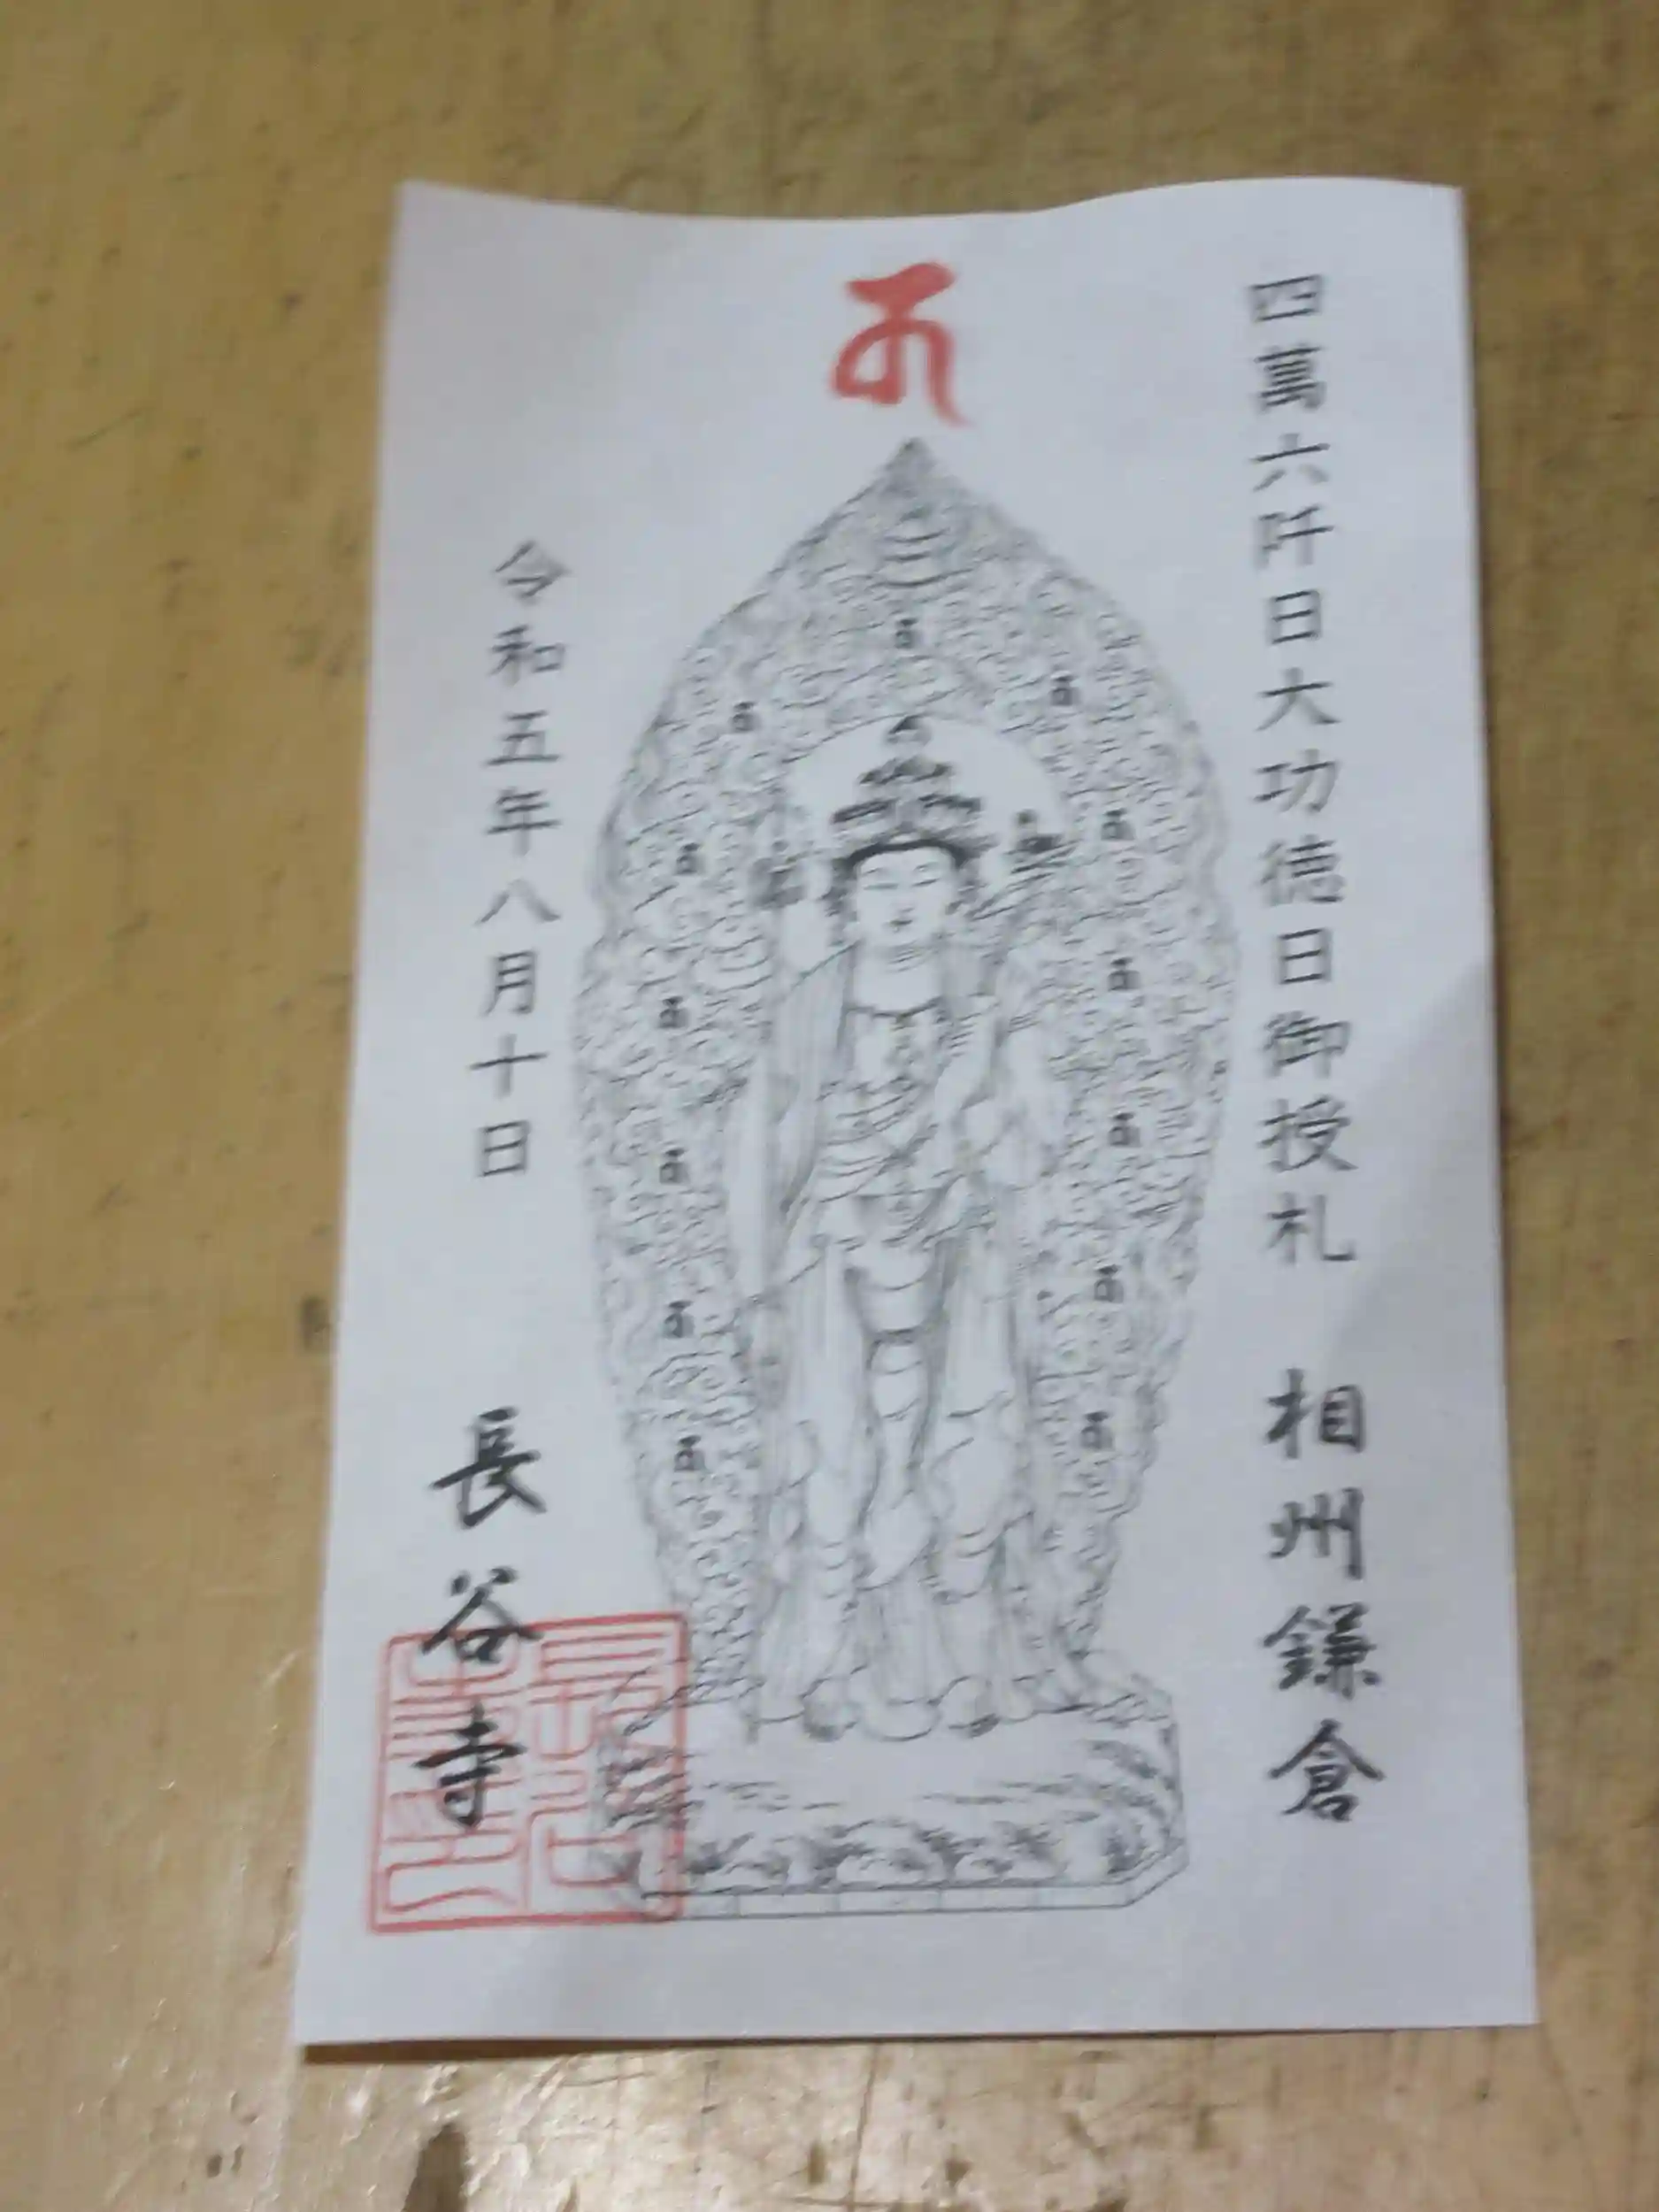 四萬六阡日大功徳日御授札　相州鎌倉
令和五年八月十日　長谷寺